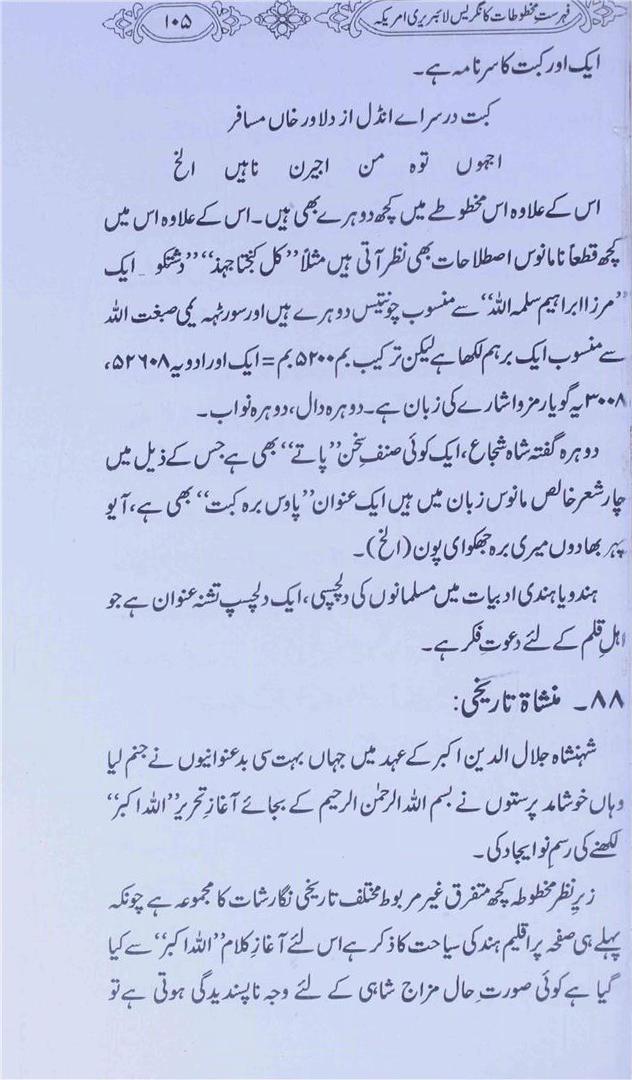 فہرست مخطوطات کانگریس لائبریری امریکہ
۱۰۵
ایک اور کبت کا سرنامہ ہے۔
کبت در سراے انڈل از دلاور خاں مسافر
اجہوں توہ من اجیرن ناہیں الخ
اس کے علاوہ اس مخطوطے میں کچھ دوہرے بھی ہیں۔ اس کے علاوہ اس میں
کچھ قطعاً نامانوس اصطلاحات بھی نظر آتی ہیں مثلاً ”کل کبختا جہذ“ ”دشتکو ۔ ایک
”مرزا ابراہیم سلمہ اللہ“ سے منسوب چونتیس دوہرے ہیں اور سورٹہہ یمی صبغت اللہ
سے منسوب ایک برہم لکھا ہے لیکن ترکیب بم ۵۲۰۰ بم = ایک اور ادویہ ۵۲۶۰۸،
۳۰۰۸ یہ گویا رمز و اشارے کی زبان ہے۔ دوہرہ دال، دوہرہ نواب۔
دوہرہ گفتہ شاہ شجاع، ایک کوئی صنف سخن ”پاتے“ بھی ہے جس کے ذیل میں
چار شعر خالص مانوس زبان میں ہیں ایک عنوان ”پاوس برہ کبت“ بھی ہے، آیو
پہر بھادوں میری برہ جھکوای پون (الخ)۔
ہندو یا ہندی ادبیات میں مسلمانوں کی دلچسپی، ایک دلچسپ تشنہ عنوان ہے جو
اہلِ قلم کے لئے دعوتِ فکر ہے۔
۸۸۔ منشاۃ تاریخی:
شہنشاہ جلال الدین اکبر کے عہد میں جہاں بہت سی بدعنوانیوں نے جنم لیا
وہاں خوشامد پرستوں نے بسم اللہ الرحمٰن الرحیم کے بجائے آغازِ تحریر ”اللہ اکبر“
لکھنے کی رسمِ نو ایجاد کی۔
زیرِ نظر مخطوطہ کچھ متفرق غیر مربوط مختلف تاریخی نگارشات کا مجموعہ ہے چونکہ
پہلے ہی صفحہ پر اقلیم ہند کی سیاحت کا ذکر ہے اس لئے آغازِ کلام ”اللہ اکبر“ سے کیا
گیا ہے کوئی صورتِ حال مزاج شاہی کے لئے وجہ ناپسندیدگی ہوتی ہے تو